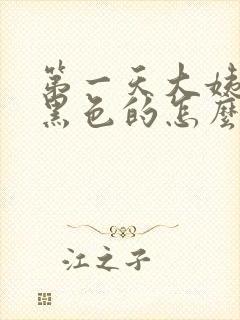 第一天大姨
黑色的怎麼
江之子